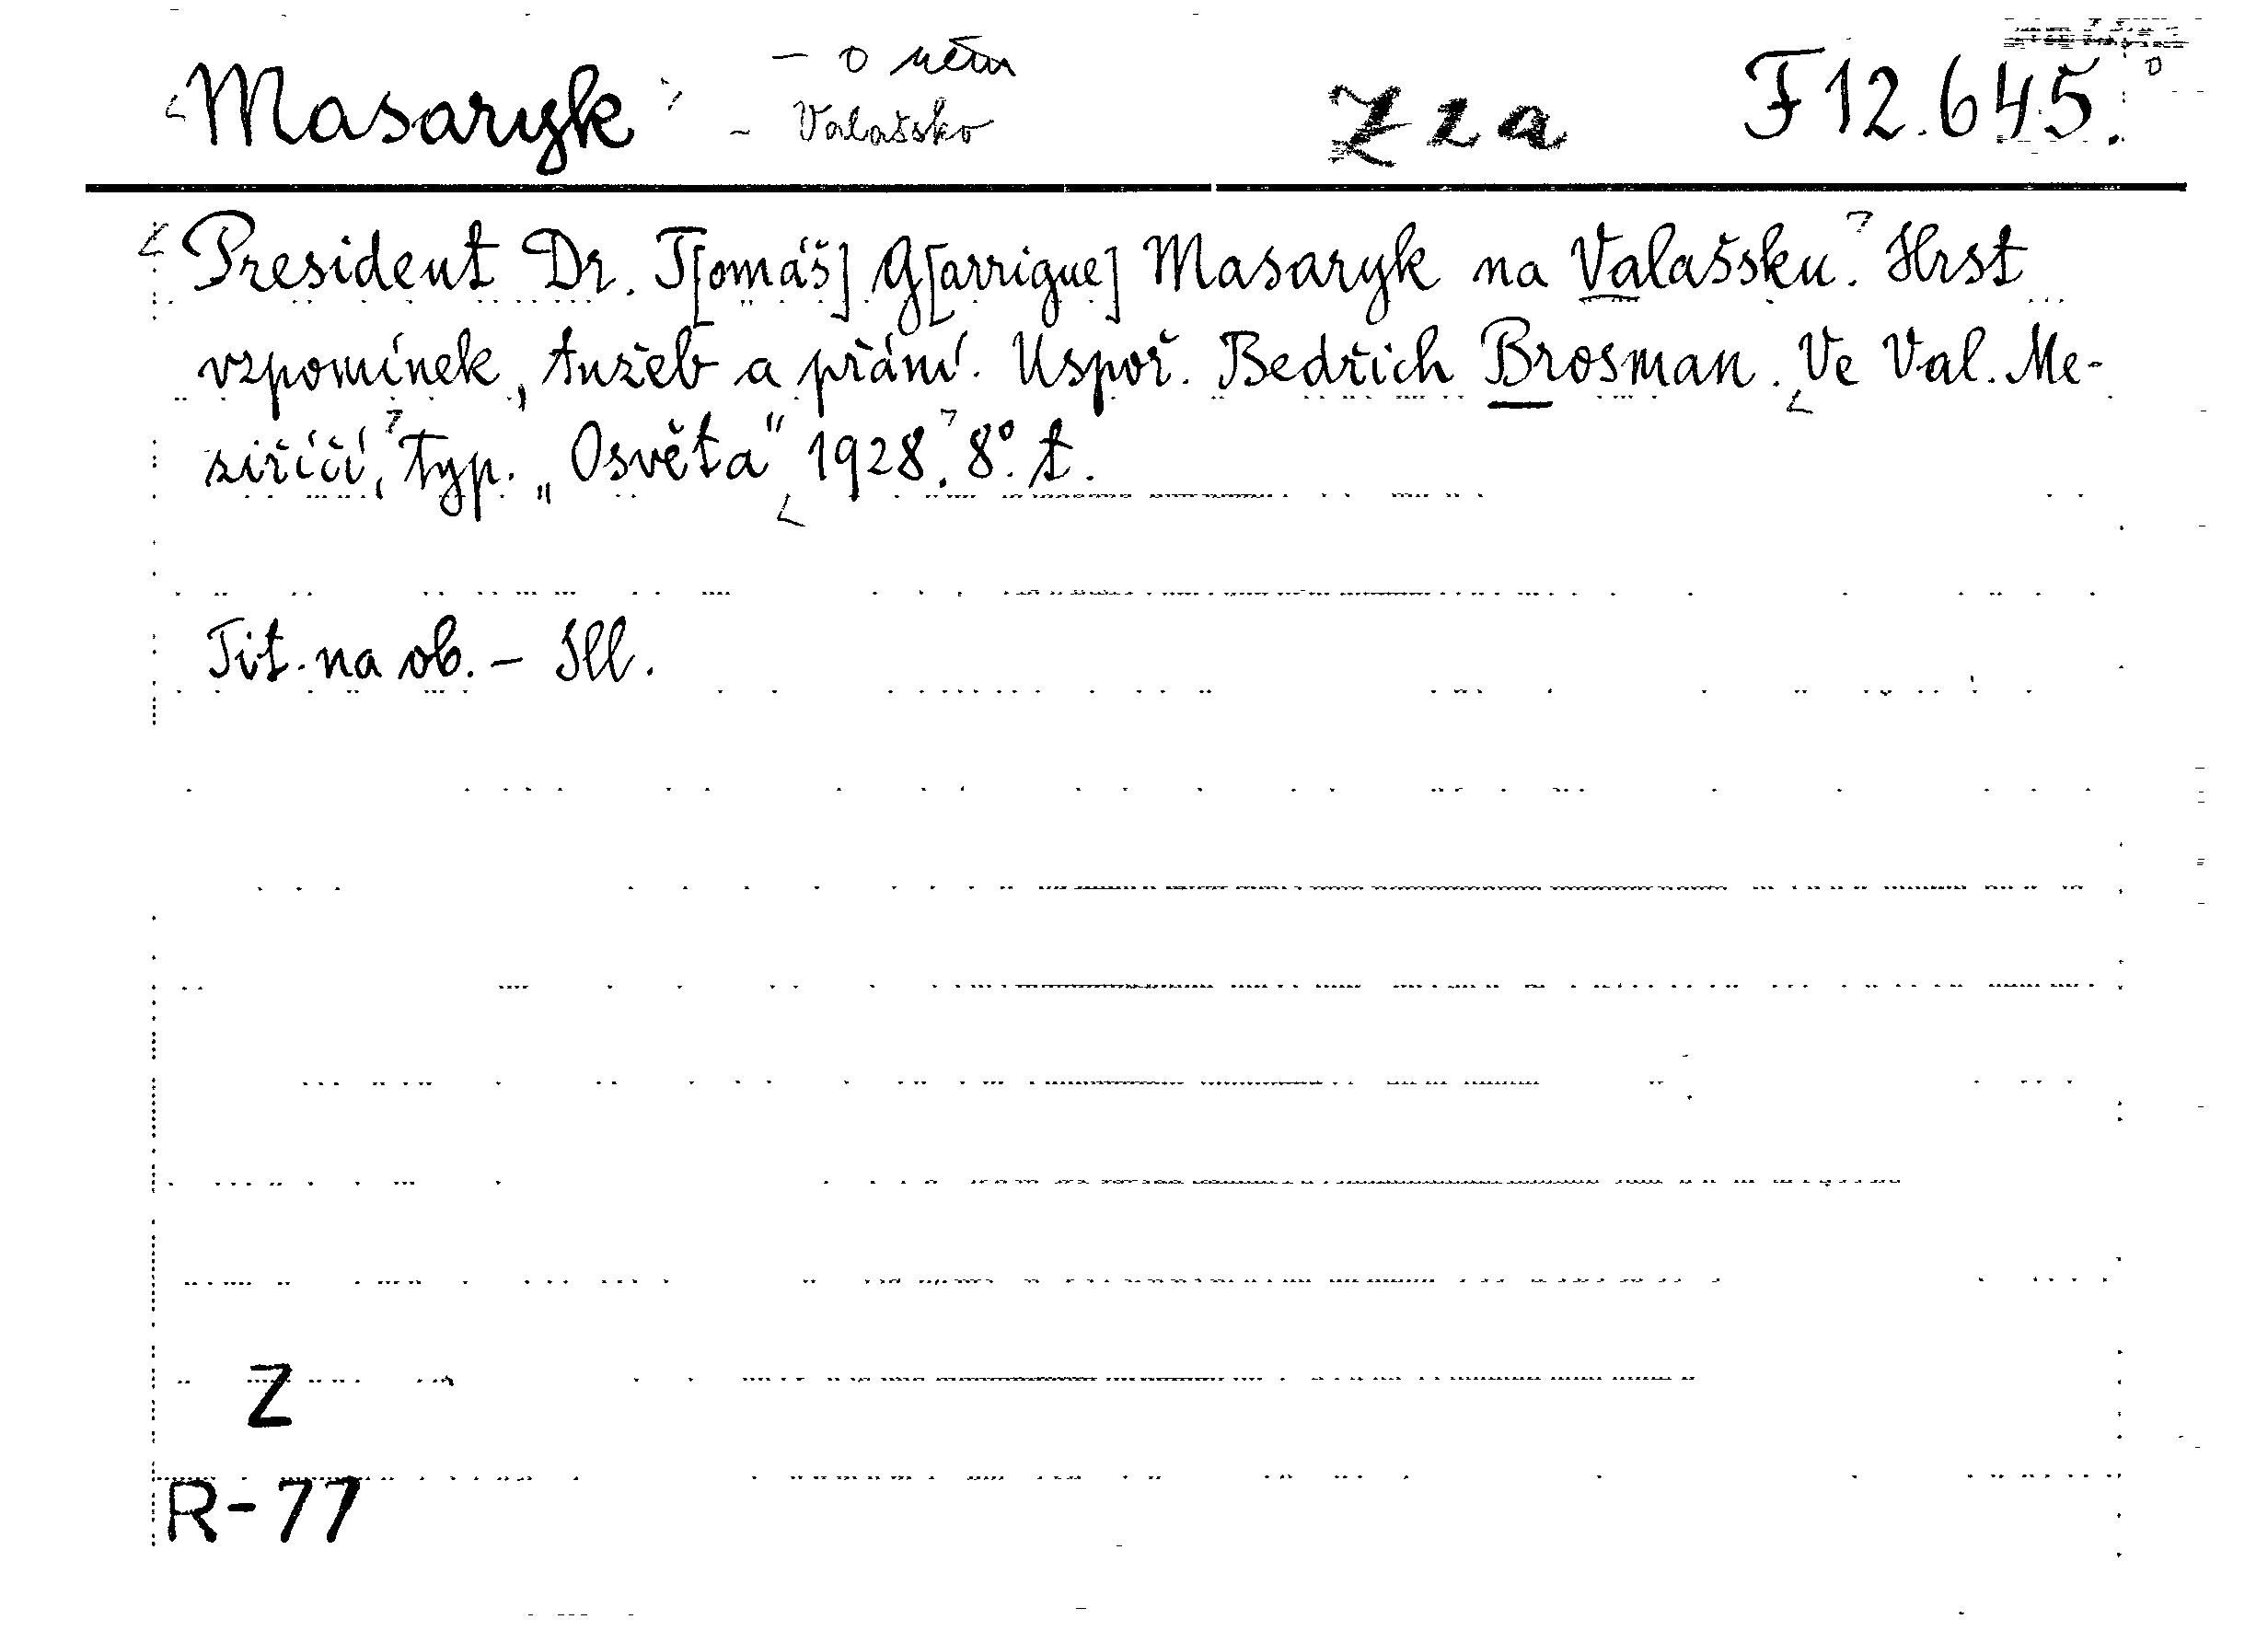 Masaryk - o něm Z za F 12.645.
- Valašsko
President Dr. T[omáš] G[arrigue] Masaryk na Valašsku. Hrst
vzpomínek, tužeb a přání. Uspoř. Bedřich Brosman. Ve Val. Me-
ziříčí, typ. „Osvěta" 1928. 8°. t.
Tit. na ob. - Ill.
Z
R-77